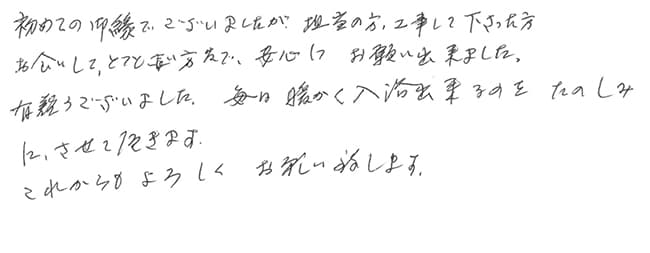 初めての御縁でございましたが、担当の方、工事して下さった方
お会いして、とても良い方々で、安心して お願い出来ました。
有難うございました。 毎日 暖かく入浴出来るのを たのしみ
に、させて頂きます。
これからもよろしく お願い致します。